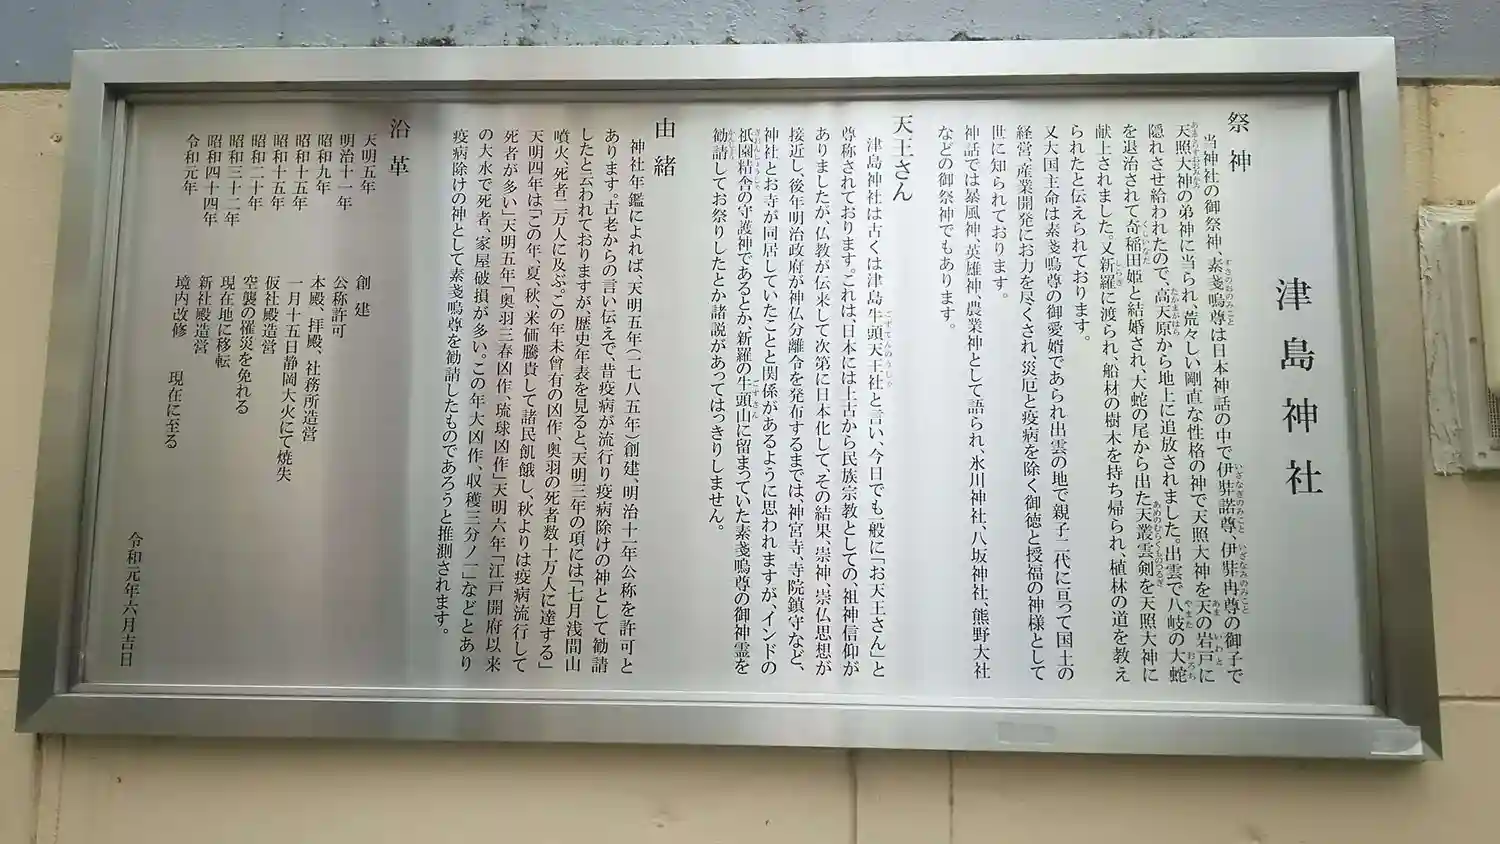 津島神社
祭神
当神社の御祭神、素戔嗚尊は日本神話の中で伊弉諾尊、伊弉冉尊の御子で
天照大神の弟神に当られ、荒々しい剛直な性格の神で天照大神を天の岩戸に
隠れさせ給われたので、高天原から地上に追放されました。出雲で八岐の大蛇
を退治されて奇稲田姫と結婚され、大蛇の尾から出た天叢雲剣を天照大神に
献上されました。又新羅に渡られ、船材の樹木を持ち帰られ、植林の道を教え
られたと伝えられております。
又大国主命は素戔嗚尊の御愛婿であられ出雲の地で親子二代に亘って国土の
経営、産業開発にお力を尽くされ、災厄と疫病を除く御徳と授福の神様として
世に知られております。
神話では暴風神、英雄神、農業神として語られ、氷川神社、八坂神社、熊野大社
などの御祭神でもあります。
天王さん
津島神社は古くは津島牛頭天王社と言い、今日でも一般に「お天王さん」と
尊称されております。これは、日本には上古から民族宗教としての、祖神信仰が
ありましたが、仏教が伝来して次第に日本化して、その結果、崇神、崇仏思想が
接近し、後年明治政府が神仏分離令を発布するまでは、神宮寺、寺院鎮守など、
神社とお寺が同居していたことと関係があるように思われますが、インドの
祇園精舎の守護神であるとか、新羅の牛頭山に留まっていた素戔嗚尊の御神霊を
勧請してお祭りしたとか諸説があってはっきりしません。
由緒
神社年鑑によれば、天明五年(一七八五年)創建、明治十一年公称を許可と
あります。古老からの言い伝えで、昔疫病が流行り疫病除けの神として勧請
したと云われておりますが、歴史年表を見ると、天明三年の項には「七月浅間山
噴火、死者二万人に及ぶ。この年未曾有の凶作、奥羽の死者数十万人に達する」
天明四年は「この年、夏、秋、米価騰貴して諸民飢餓し、秋よりは疫病流行して
死者が多い」天明五年「奥羽三春凶作、琉球凶作」天明六年「江戸開府以来
の大水で死者、家屋破損が多い。この年大凶作、収穫三分ノ一」などとあり
疫病除けの神として素戔嗚尊を勧請したものであろうと推測されます。
沿革
天明五年 創建
明治十一年 公称許可
昭和九年 本殿、拝殿、社務所造営
昭和十五年 一月十五日静岡大火にて焼失
昭和十五年 仮社殿造営
昭和二十年 空襲の罹災を免れる
昭和三十二年 現在地に移転
昭和四十四年 新社殿造営
令和元年 境内改修 現在に至る
令和元年六月吉日